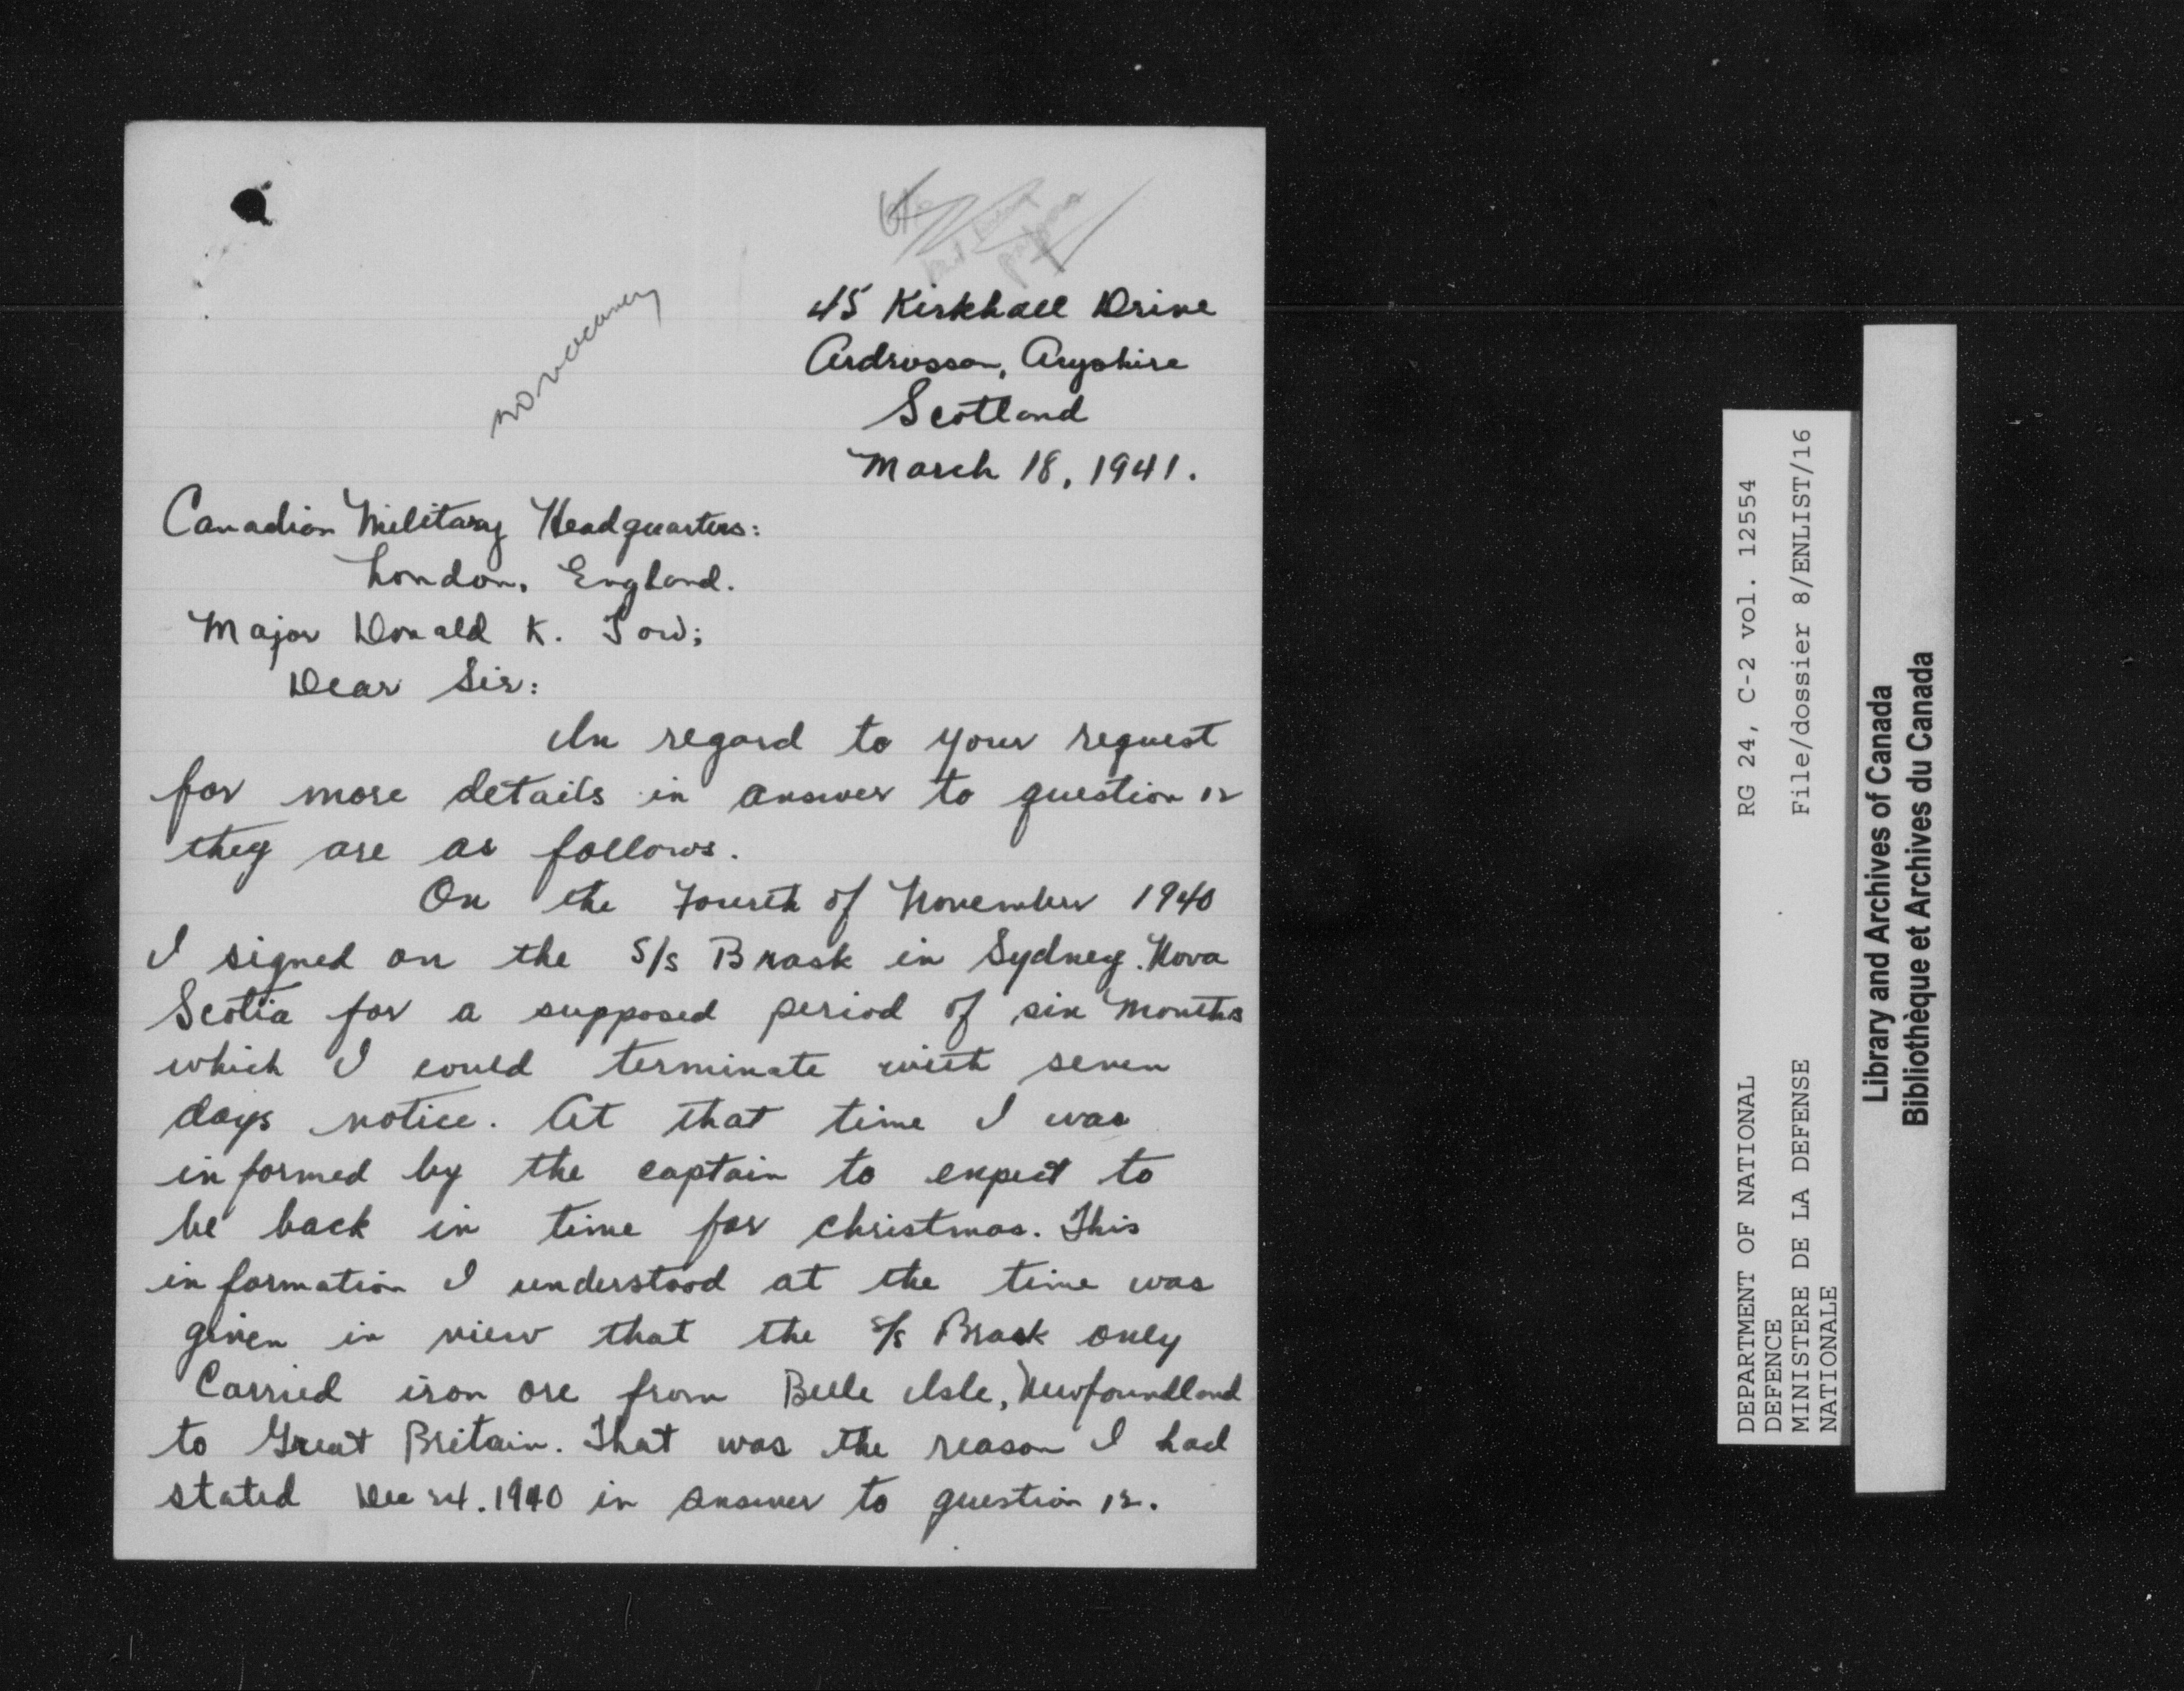 no vacancy
45 Kirkhall Drive
Ardrossan, Aryshire
Scotland
March 18, 1941.
Canadian Military Headquarters:
London, England.
Major Donald K. Tow;
Dear Sir:
In regard to your request
for more details in answer to question 12
they are as follows.
On the Fourth of November 1940
I signed on the S/s Brask in Sydney. Nova
Scotia for a supposed period of six months
which I could terminate with seven
days notice. At that time I was
informed by the captain to expect to
be back in time for christmas. This
information I understood at the time was
given in view that the S/s Brask only
Carried iron ore from Belle Isle, Newfoundland
to Great Britain. That was the reason I had
stated Dec 24. 1940 in answer to question 12.
RG 24, C-2 vol. 12554
File/dossier 8/ENLIST/16
DEPARTMENT OF NATIONAL
DEFENCE
MINISTERE DE LA DEFENSE
NATIONALE
Library and Archives of Canada
Bibliothèque et Archives du Canada